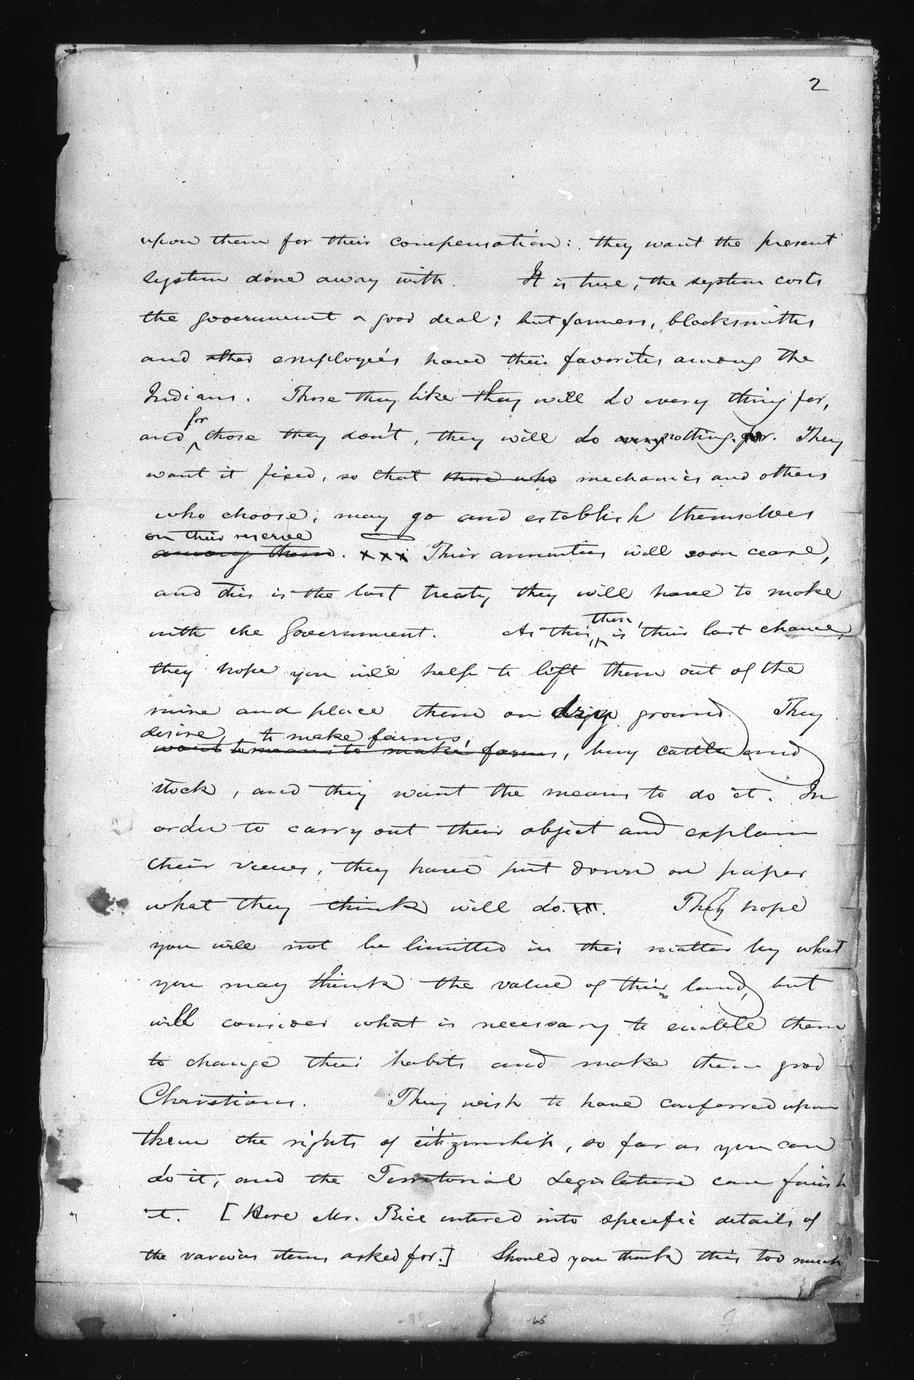 2
upon them for their compensation: they want the present
system done away with. It is true, the system costs
the government a good deal; but farmers, blacksmiths
and other employées have their favorites among the
Indians. Those they like they will do every thing for,
for
and those they don't, they will do nothing for. They
want it fixed, so that those who mechanics and others
who choose, may go and establish themselves
on their reserve
among them. xxx Their annuities will soon cease,
and this is the last treaty they will have to make
then,
with the Government. As this, is their last chance,
they hope you will help to lift them out of the
mire and place them on dry ground. They
desire, to make farms,
want to means to make farms, buy cattle and
stock, and they want the means to do it. In
order to carry out their object and explain
their views, they have put down on paper
what they think will do. They hope
you will not be limitted in this matter by what
you may think the value of their land, but
will consider what is necessary to enable them
to change their habits and make them good
Christians. They wish to have conferred upon
them the rights of citizenship, so far as you can
do it, and the Territorial Legislature can finish
it. [Here Mr. Rice entered into specific details of
the various items asked for.] Should you think this too much